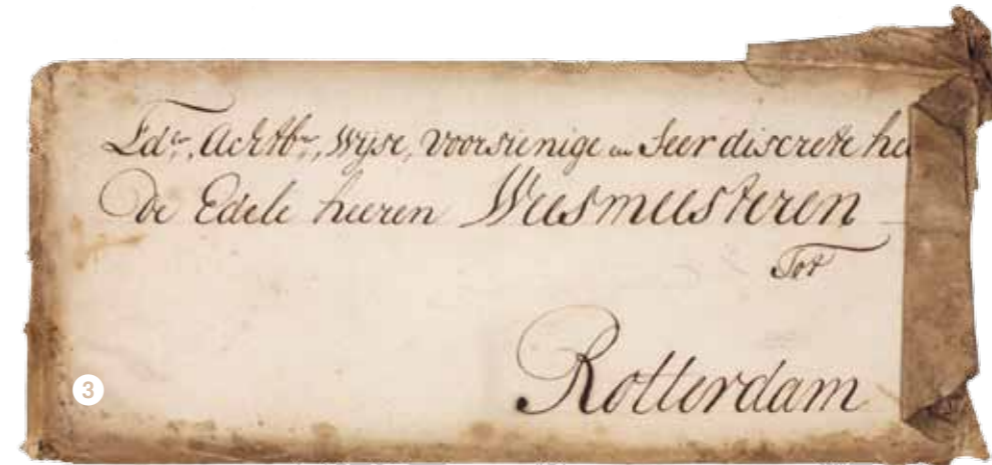 Edᵉ, Achtbᵉ, Wijse, Voorsienige en Seer discrete he
De Edele heeren Weesmeesteren
Tot
Rotterdam
3